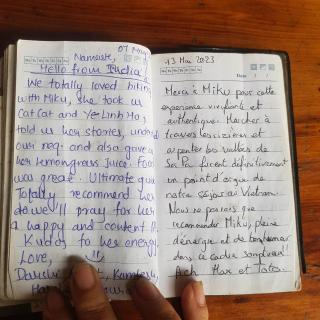 07 May
Namaste,
Hello from India!
We totally loved hiking
with Miku, she took us
Cat Cat and Ye Linh Ho,
told us her stories, under
our req. and also gave us
her lemongrass Juice. Food
was great. Ultimate guide
Totally recommend her
do we'll pray for her
a happy and content li
Kudos to her energy
Love,
13 Mai 2023
Date
Merci à Miku pour cette
expérience vivifiante et
authentique. Marcher à
travers les rizières et
arpenter les vallées de
Sa Pa furent définitivement
un point d'orgue de
notre séjour au Vietnam.
Nous ne pouvons que
recommander Miku, pleine
d'énergie et de
dans ce cadre somptueux!
Max et